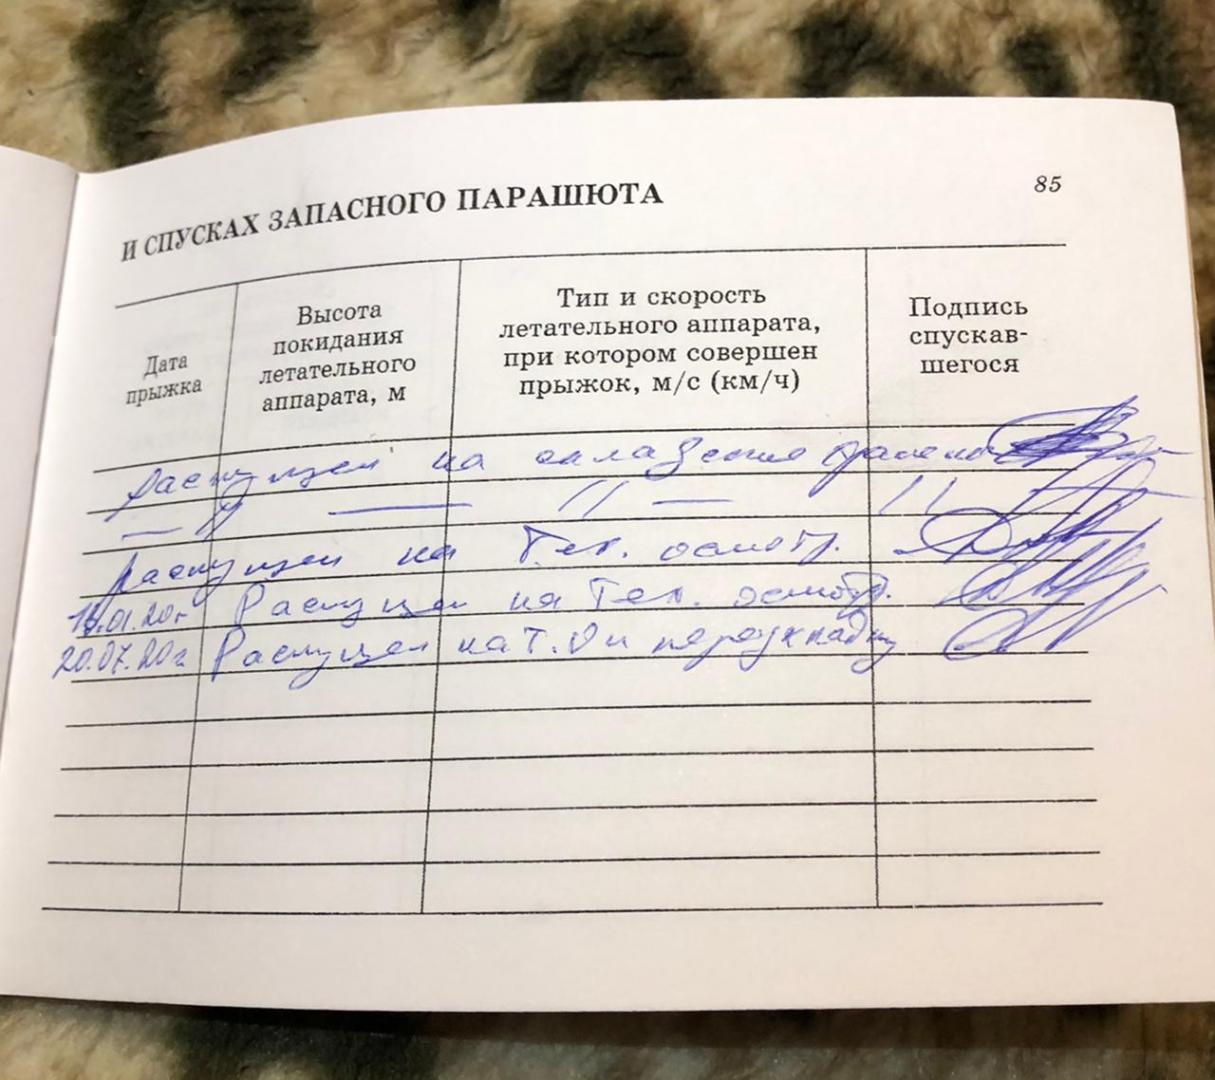 85
И СПУСКАХ ЗАПАСНОГО ПАРАШЮТА
Дата
прыжка
Высота
покидания
летательного
аппарата, м
Тип и скорость
летательного аппарата,
при котором совершен
прыжок, м/с (км/ч)
Подпись
спускав-
шегося
Распущен на
— 〃 — 〃 — 〃
Распущен на Тех. осмотр.
.01.20г Распущен на Тех. осмотр.
20.07.20г Распущен на Т.О и переукладку